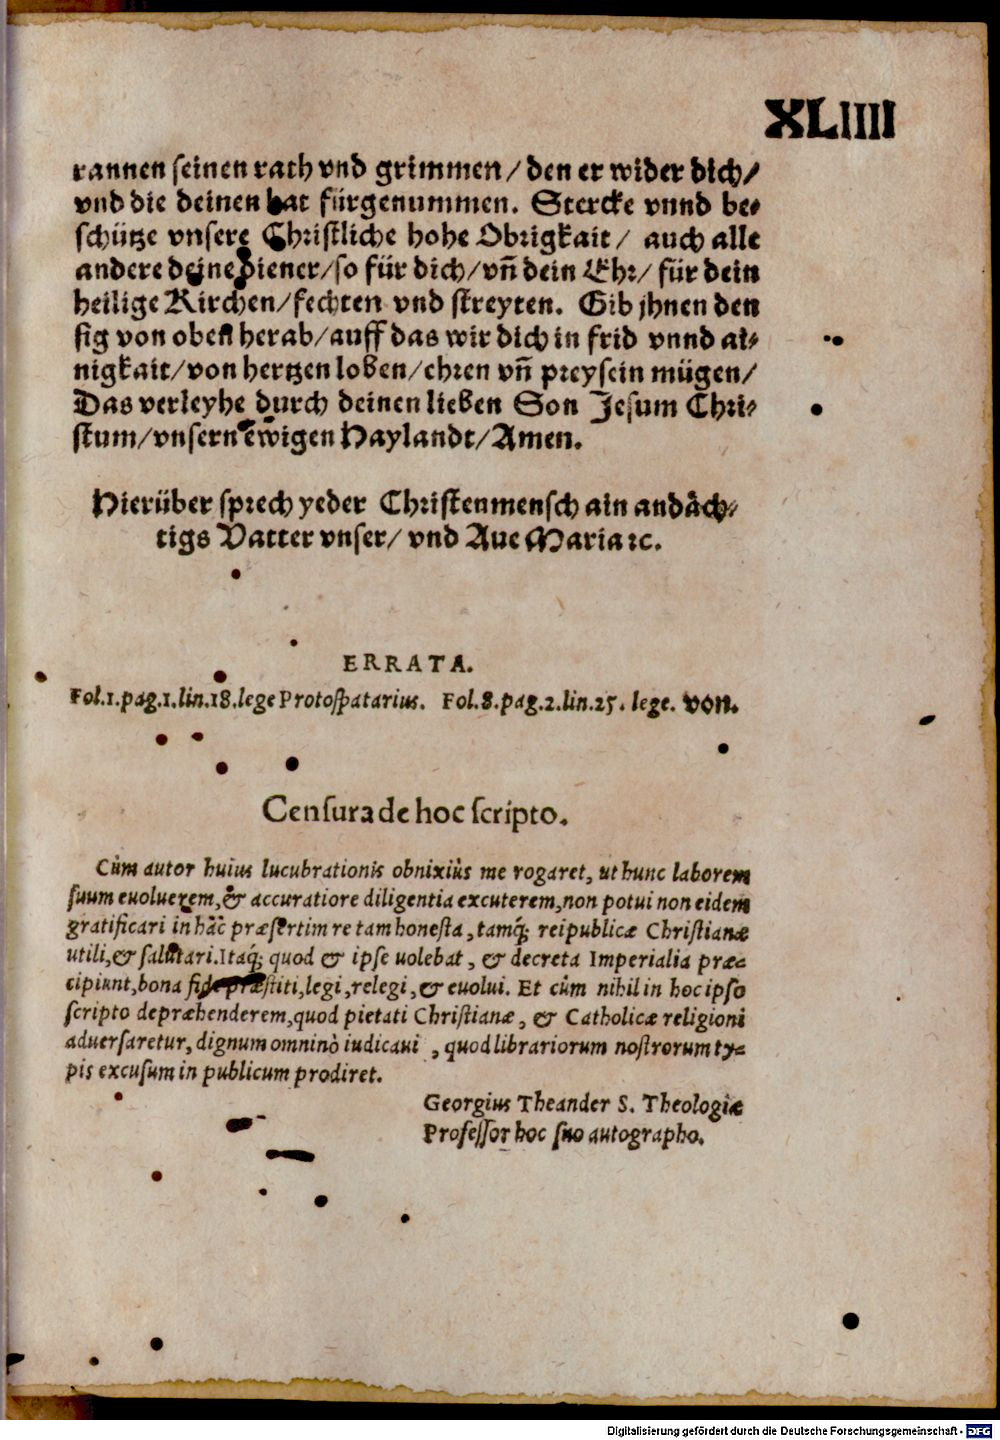 XLIIII
rannen seinen rath vnd grimmen/ den er wider dich/
vnd die deinen hat fürgenummen. Stercke vnnd be⸗
schütze vnsere Christliche hohe Obrigkait/ auch alle
andere deine diener/so für dich/vn̄ dein Ehr/ für dein
heilige Kirchen/fechten vnd streyten. Gib jhnen den
sig von oben herab/auff das wir dich in frid vnnd ai⸗
nigkait/von hertzen loben/ehren vn̄ preysein mügen/
Das verleyhe durch deinen lieben Son Jesum Chri⸗
stum/vnsern ewigen Haylandt/Amen.
Hierüber sprech yeder Christenmensch ain andäch⸗
tigs Vatter vnser/ vnd Aue Maria ꝛc.
ERRATA.
Fol.1.pag.1.lin.18.lege Protospatarius. Fol.8.pag.2.lin.25. lege. von.
Censura de hoc scripto.
Cùm autor huius lucubrationis obnixiùs me rogaret, ut hunc laborem
suum euoluerem,& accuratiore diligentia excuterem,non potui non eidem
gratificari in hâc præsertim re tam honesta, tamq́; reipublicæ Christianæ
utili,& salutari.Itaq́; quod & ipse uolebat, & decreta Imperialia præ⸗
cipiunt,bona fide præstiti,legi,relegi,& euolui. Et cùm nihil in hoc ipso
scripto depræhenderem,quod pietati Christianæ, & Catholicæ religioni
aduersaretur, dignum omninò iudicaui , quod librariorum nostrorum ty⸗
pis excusum in publicum prodiret.
Georgius Theander S. Theologiæ
Professor hoc suo autographo.
Digitalisierung gefördert durch die Deutsche Forschungsgemeinschaft - DFG